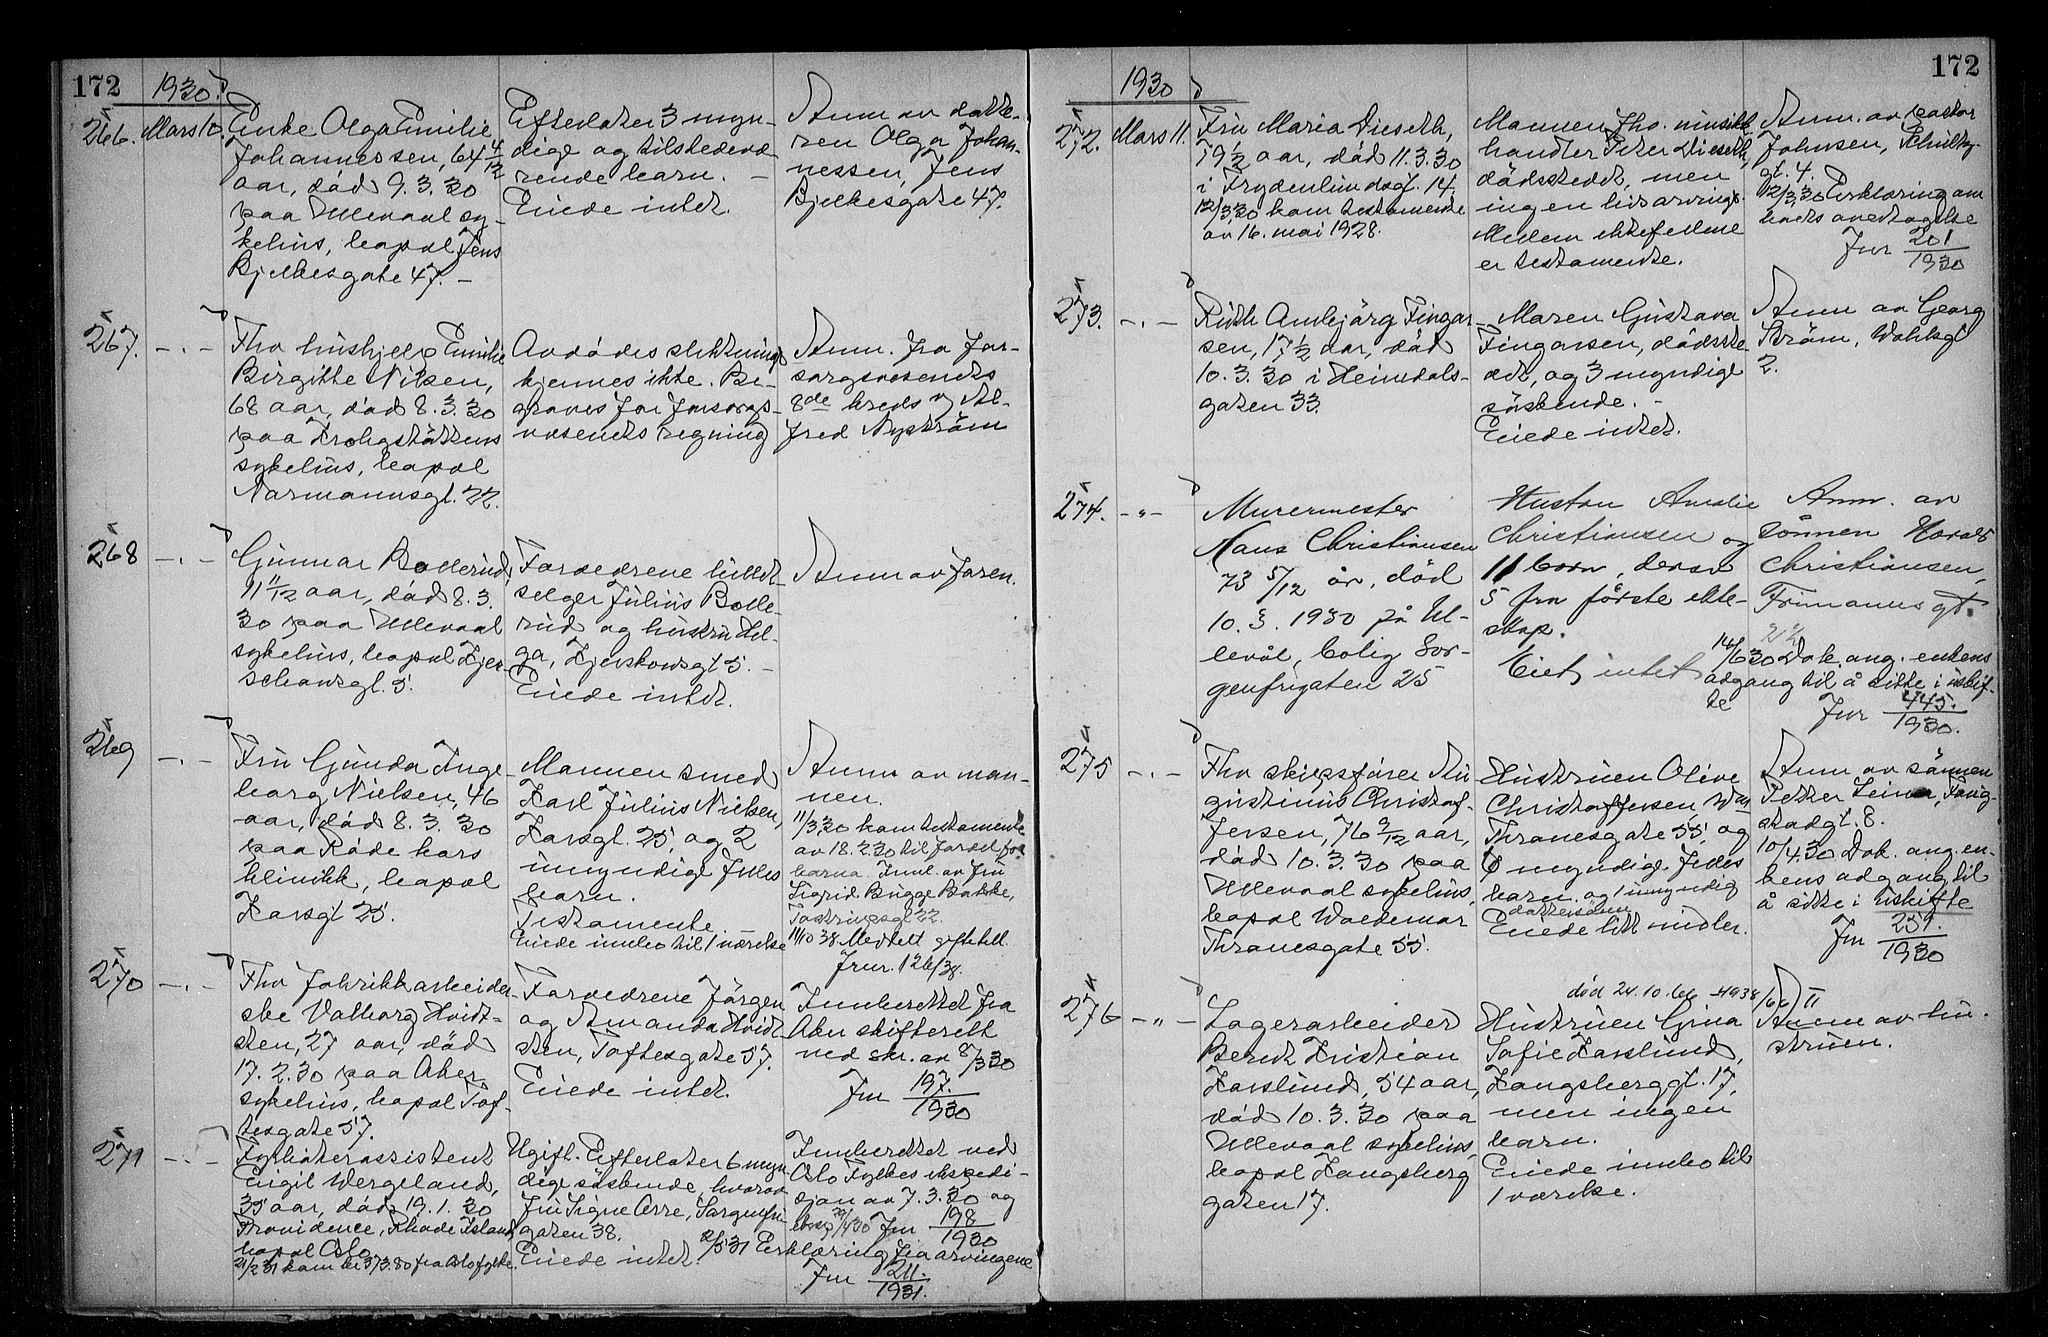 172
1930.
266. Mars 10.
Enke Olga Emilie
Johannessen, 64 4/12
aar, död 9.3.30
paa Ullevaal sy-
kehus, bopæl Jens
Bjelkesgate 47. -
Efterlater 3 myn-
dige og tilstedevæ-
rende barn. -
Eiede intet.
Anm. av datte-
ren Olga Johan-
nessen, Jens
Bjelkesgate 47.
267. - " -
Fhv. hushjelp Emilie
Birgitte Nilsen,
68 aar, död 8.3.30
paa Krohgstöttens
sykehus, bopæl
Normannsgt. 22.
Avdödes slektninge
kjennes ikke. Be-
graves for forsorgs-
væsenets regning
Anm. fra For-
sorgsvæsenets
8de kreds v/ Al-
fred Nyström
268 - " -
Gunnar Bollerud,
11 11/12 aar, död 8.3.
30 paa Ullevaal
sykehus, bopæl Kjer-
schowsgt. 5.
Forældrene billet-
selger Julius Bolle-
rud og hustru Hel-
ga, Kjerschowsgt 5. -
Eiede intet.
Anm av faren.
269 - " -
Fru Gunda Inge-
borg Nielsen, 46
aar, död 8.3.30
paa Röde kors
klinikk, bopæl
Korsgt 25.
Mannen smed
Karl Julius Nielsen,
Korsgt. 25, og 2
umyndige fælles
barn.
Testamente.
Eiede innbo til 1 værelse
Anm av man-
nen.
11/3.30 kom testamente
av 18.2.30 til fordel for
barna. Innl. av Fru
Sigrid Brügge Bakke,
Tostrupsgt 22.
11/10 38. Meddelt giftetill.
Jnr. 126/38.
270 - " -
Fhv fabrikkarbeider-
ske Valborg Hvidt-
sten, 27 aar, död
17.2.30 paa Aker
sykehus, bopæl Tof-
tesgate 57.
Forældrene Jörgen
og Amanda Hvidt
sten, Toftesgate 57.
Eiede intet.
Innberettet fra
Aker skifterett
ved skr. av 8/3 30
Jnr 197/1930
271 - " -
Fyrböterassistent
Eigil Wergeland,
35 aar, död 19.1.30
Providence, Rhode Island,
bopæl Oslo
21/2 31 kom br 3/3.30 fra Oslo fylke.
Ugift. Efterlater 6 myn
dige söskende, hvorav
Fru Signe Orre, Sorgenfri
gaten 38.
Eiede intet.
Innberettet ved
Oslo Fylkes ekspedi-
sjon av 7.3.30 og
29/4 30 Jnr 198/1930
2/5 31 Erklæring fra arvingene
Jnr 211./1931.
172
1930
272. Mars 11.
Fru Maria Dieseth,
79 1/2 aar, död 11.3.30
i Frydenlundsgt. 14.
12/3.30 kom testamente
av 16. mai 1928.
Mannen fhv. musikk
handler Peter Dieseth,
dödsstedet, men
ingen livsarvinge.
Mellem ektefellene
er testamente.
Anm. av pastor
Johnsen, Schultz
gt. 4.
12/3.30 Erklæring om
boets overtagelse
Jnr 201/1930
273. - " -
Ruth Ambjörg Fingar
sen, 17 1/2 aar, död
10.3.30 i Heimdals-
gaten 33.
Moren Gustava
Fingarsen, dödsste-
det, og 3 myndige
söskende. -
Eiede intet.
Anm av Georg
Ström, Wahlsgt
2.
274. - " -
Murermester
Hans Christiansen
73 5/12 år, död
10.3.1930 på Ul-
levål, bolig Sor-
genfrigaten 25
Hustru Amalie
Christiansen og
11 barn, derav
5 fra første ekte-
skap.
Eiet intet
Anm. av
sönnen Harald
Christiansen,
Frimanns gt.
21/2
14/6 30 Dok. ang. enkens
adgang til å sitte i uskif-
te
Jnr 445./1930.
275 - " -
Fhv skipsförer Au
gustinus Christof-
fersen, 76 9/12 aar,
död 10.3.30 paa
Ullevaal sykehus,
bopæl Waldemar
Thranesgate 55.
Hustruen Olive
Christoffersen W
Thranesgate 55, og
6 myndige fælles
barn og 1 umyndig
dattersönn
Eiede litt midler.
Anm av sönnen
Petter Leiner, Fang-
stadgt. 8.
10/4.30 Dok. ang. en-
kens adgang til
å sitte i uskifte
Jnr 251./1930
276 - " -
Lagerarbeider
Bernt Kristian
Karslund, 54 aar,
död 10.3.30 paa
Ullevaal sykehus,
bopæl Langsberg
gaten 17.
död 24.10.66 - 1938/66 II
Hustruen Gina
Sofie Karslund,
Langsberggt. 17,
men ingen
barn.
Eiede innbo til
1 værelse.
Anm av hu-
struen.